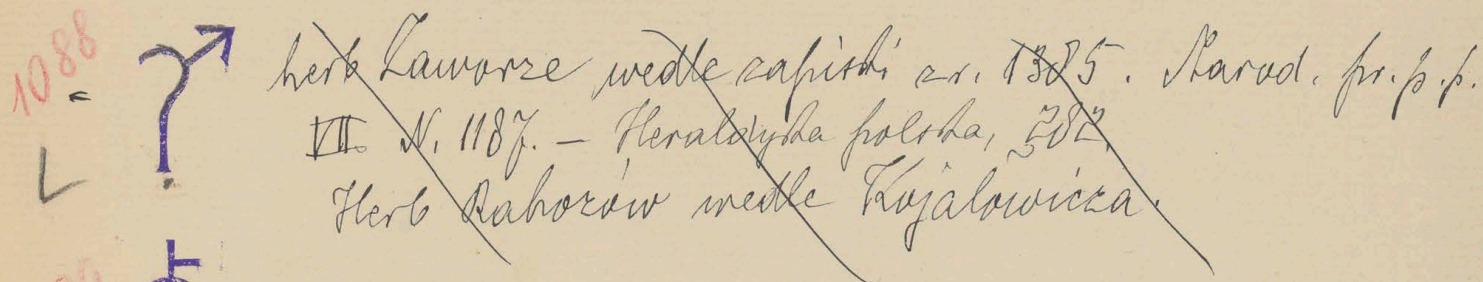 1088
herb Zaworze wedle zapiski z r. 1385. Starod. pr. p. p.
VII. N. 1187. – Heraldyka polska, 282.
Herb Rahozów wedle Kojałowicza.